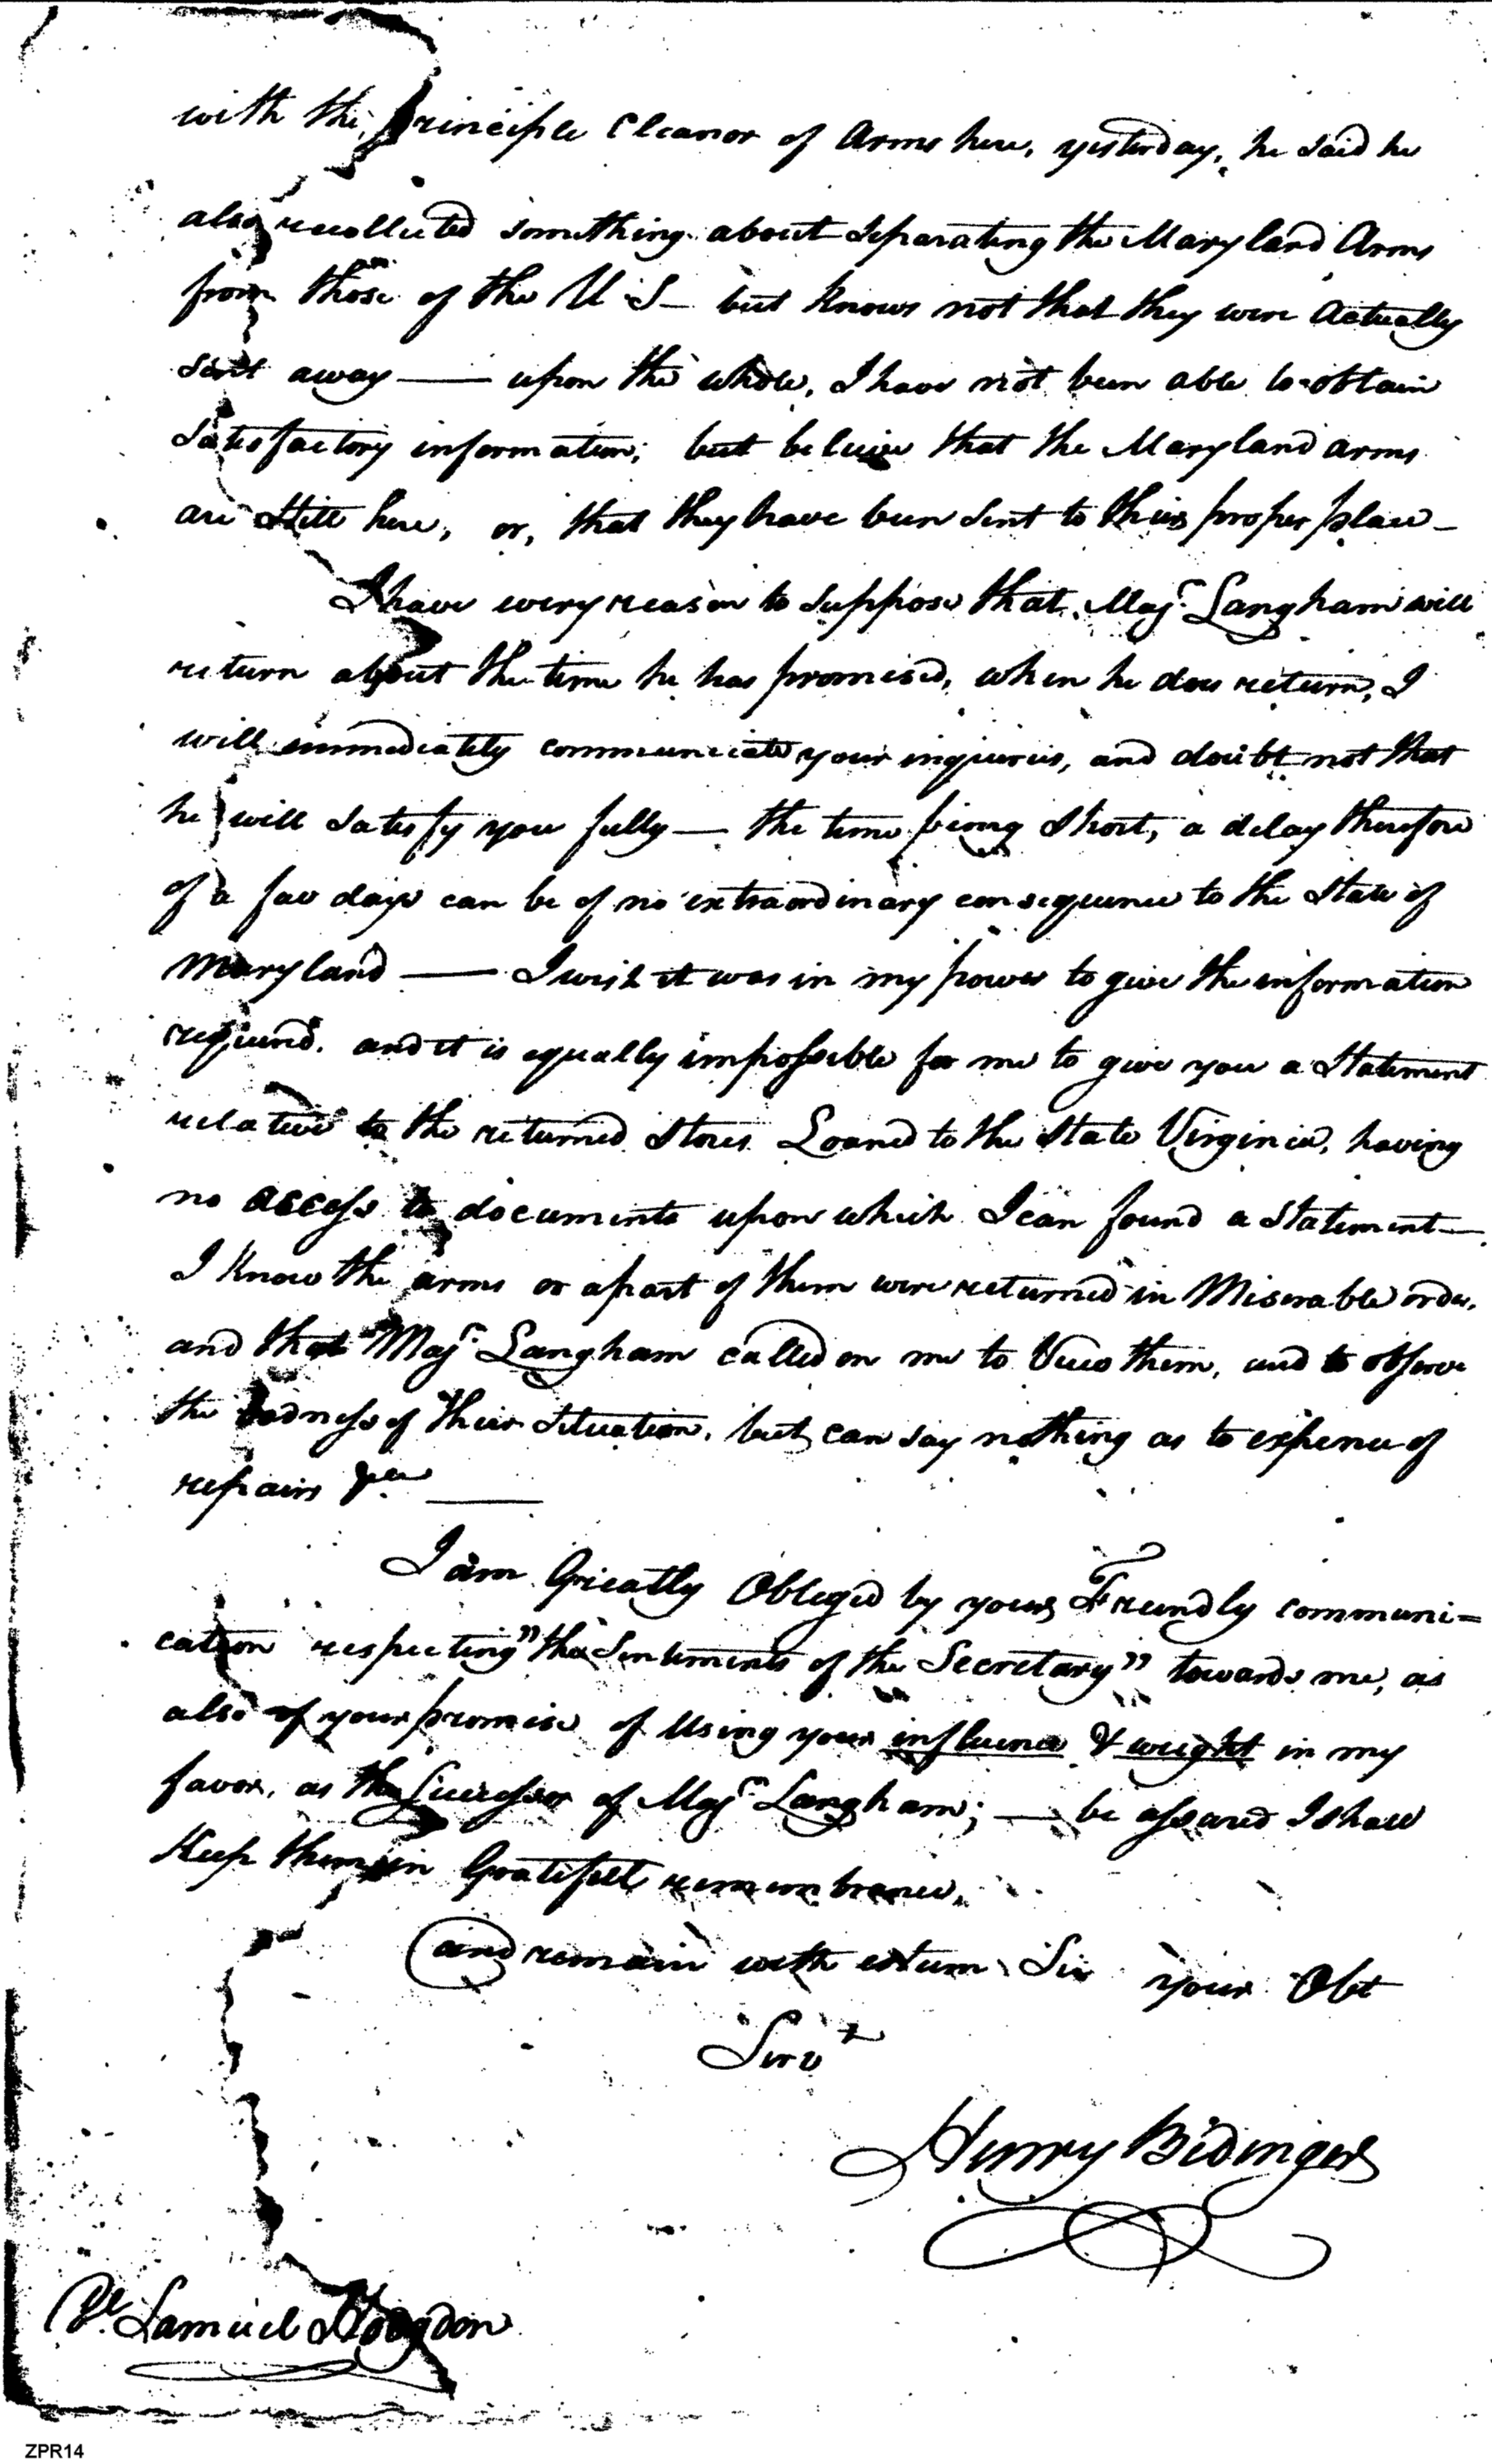 with the principle Cleanor of Arms here, yesterday, he said he
also recollected something about separating the Maryland Arms
from those of the U S— but knows not that they were actually
sent away —— upon the whole, I have not been able to obtain
satisfactory information; but believe that the Maryland arms
are still here, or, that they have been sent to their proper place—
I have every reason to suppose that Majr. Langham will
return about the time he has promised, when he does return, I
will immediately communicate your inquiries, and doubt not that
he will satisfy you fully — the time being short, a delay therefore
of a few days can be of no extraordinary consequence to the State of
Maryland —— I wish it was in my power to give the information
required. and it is equally impossible for me to give you a Statement
relative to the returned Stores Loaned to the State Virginia, having
no access to documents upon which I can found a Statement—
I know the arms or a part of them were returned in Miserable order,
and that Majr. Langham called on me to View them, and to observe
the badness of their Situation. but can say nothing as to expence of
repairs &ca ——
I am Greatly Obleged by your Freindly communi=
cation respecting "the Sentiments of the Secretary" towards me, as
also of your promise of Using your influence & weight in my
favor, as the Successor of Majr. Langham; — be assured I shall
Keep them in Gratefull rememmbrance,
and remain with esteem Sir your Obt
Servt
Henry Bidinger
Samuel Hodgdon
ZPR14